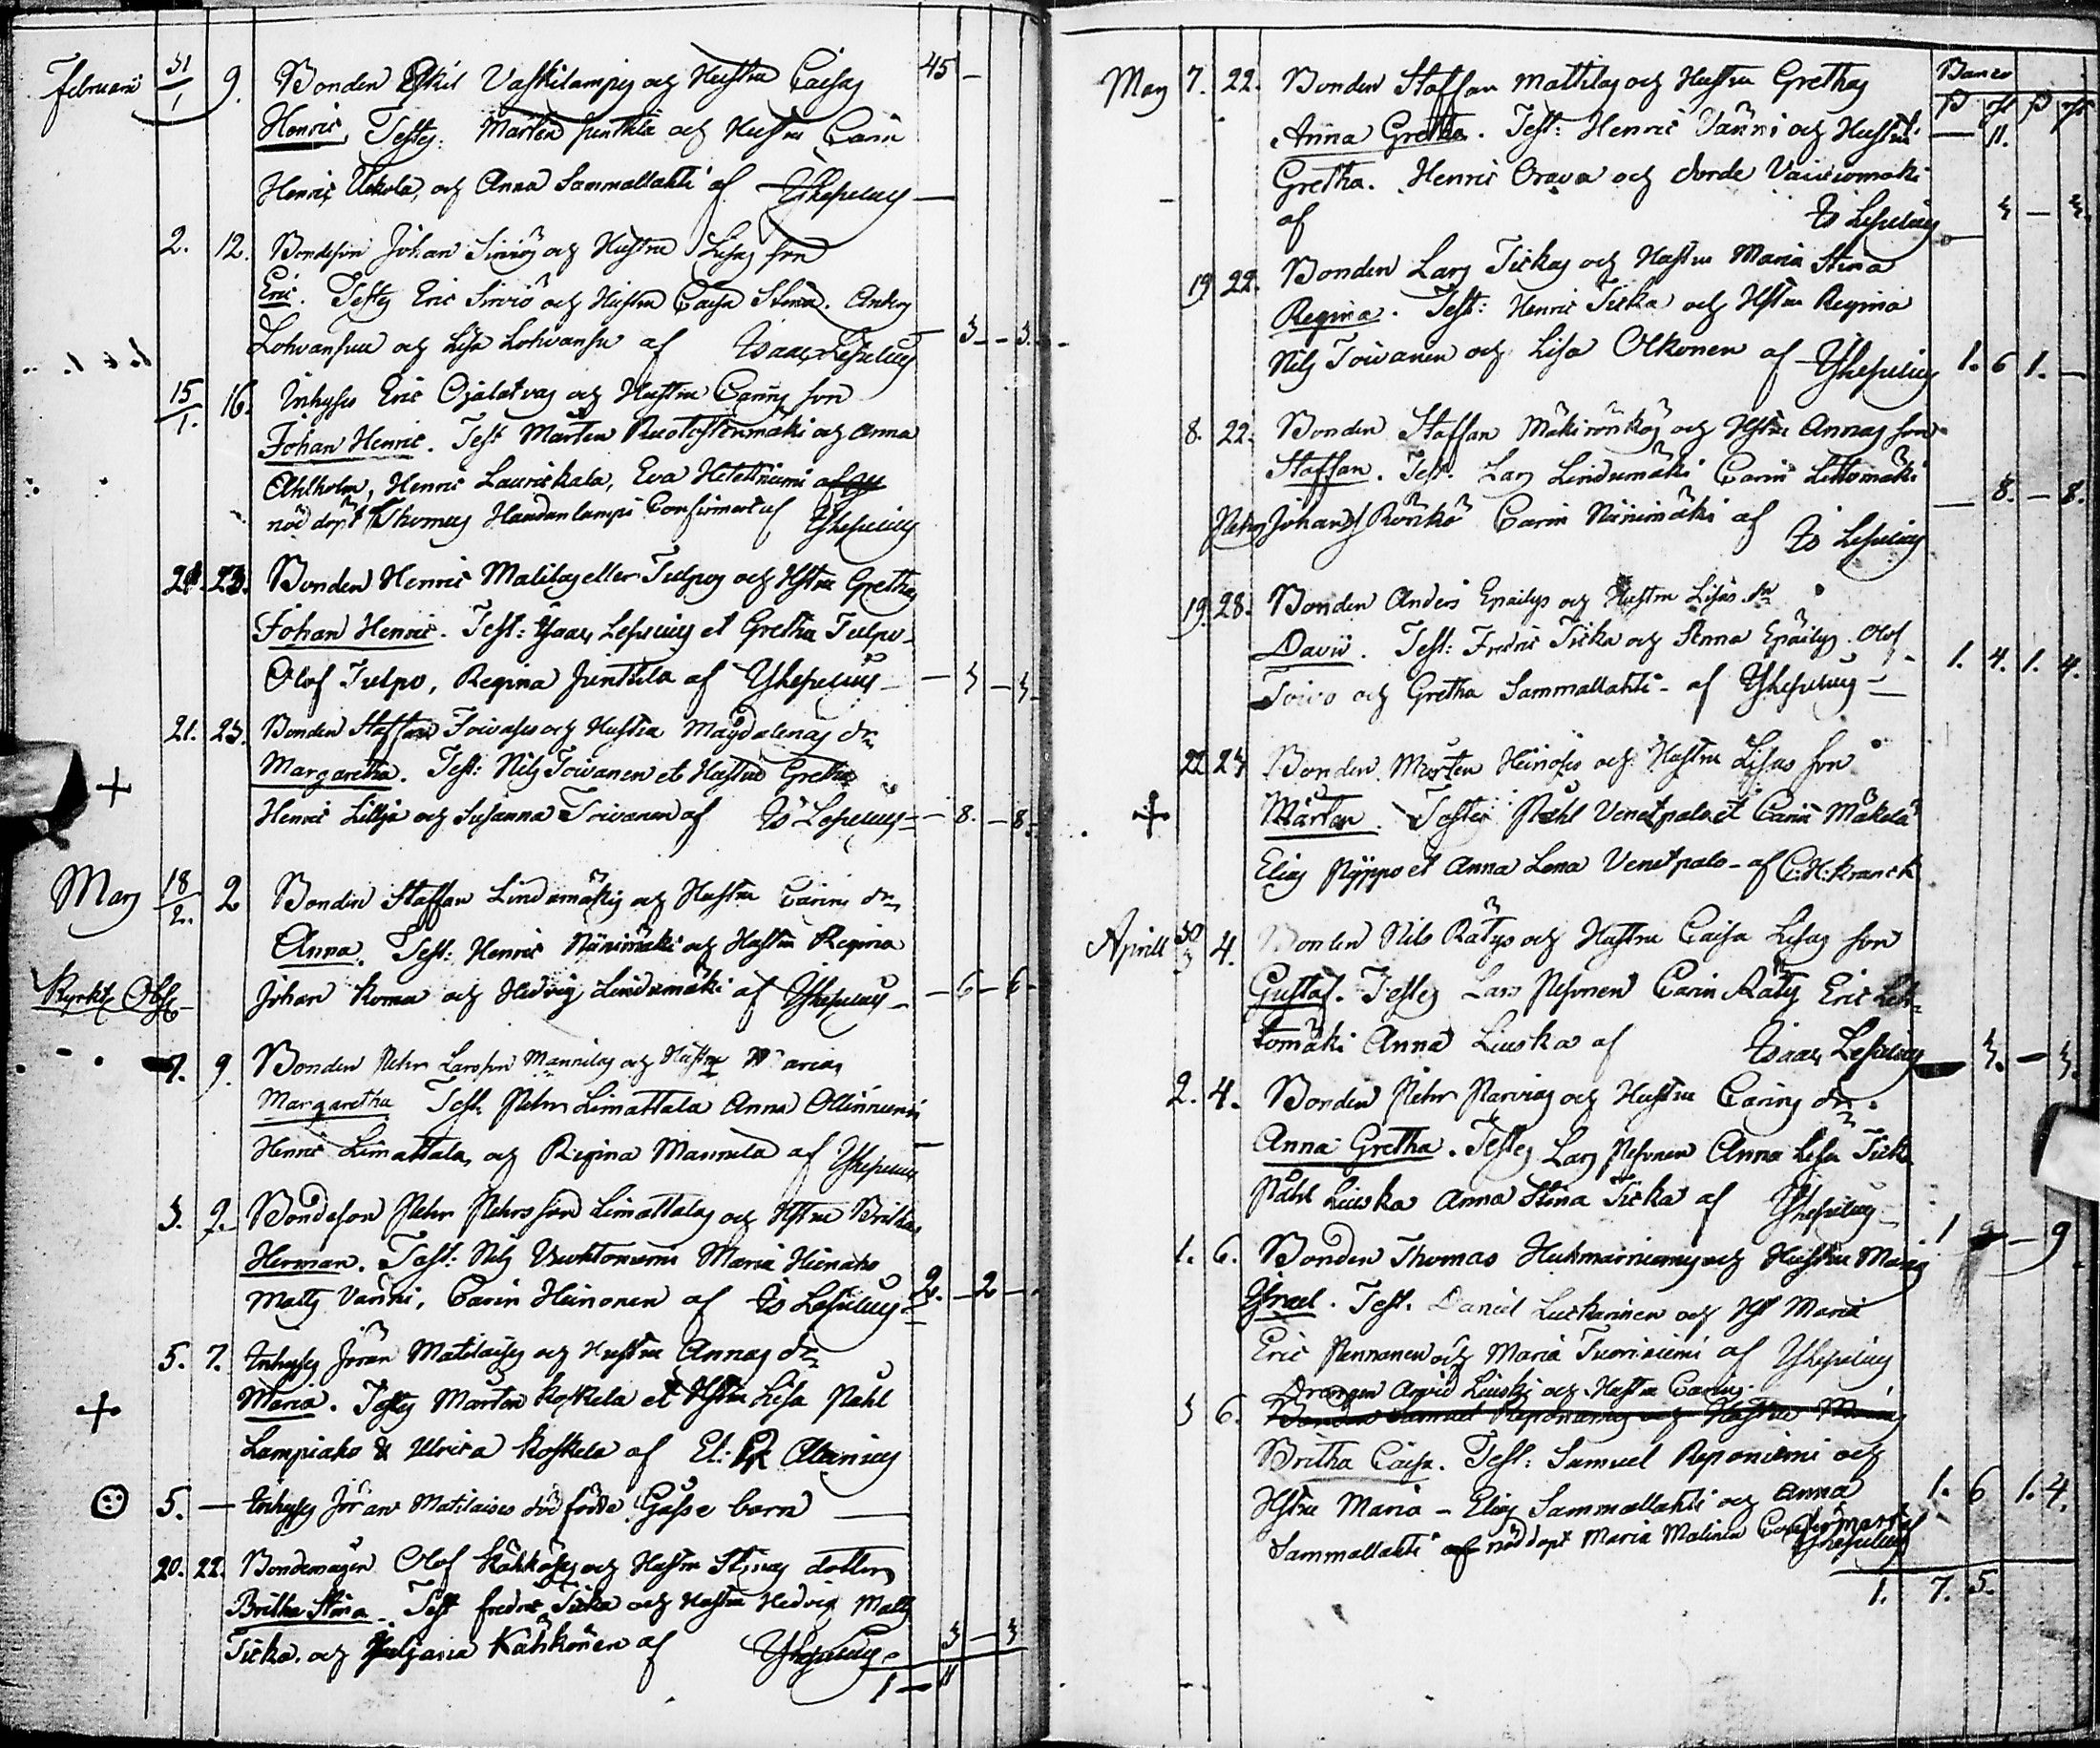 Februarii 31/1 9. Bonden Eskil Vaskilampis och Hustru Caisas 45 -
Henric, Testes. Mårten Junttila och Hustru Carin
Henric Uckola, och Anna Sammallahti af YsLeselius
2. 12. Bondeson Johan Sirviös och Hustru Lisas son
Eric. Testes Eric Sirviö och Hustru Caisa Stina. Anders
Lohvansuu och Lisa Lohvansu af Isaac Leselius - 3 - - 3.
15/1. 16. Inhyses Eric Ojalatvas och Hustru Carins son
Johan Henric. Test Mårten Ruotostenmäki och Anna
Ahlholm, Henric Lauriskala, Eva Hiteniemi af
nöddöpt Thomas Haudanlampi Confirmert af YsLeselius
21. 23. Bonden Henric Malilas eller Tulpos och Hstru Grethas
Johan Henric. Test: Isaac Leselius et Gretha Tulpo
Olof Tulpo, Regina Junttila af YsLeselius - 3 - 3
21. 23. Bonden Staffan Toivases och Hustru Magdalenas dr
Margaretha. Test: Nils Toivanen et Hustru Gretha
+ Henric Lillja och Susanna Toivanen af Is Leselius - 8. - 8.
Mars 18/2. 2 Bonden Staffan Lindumäkis och Hustru Carins dr
Anna. Test: Henric Niinimäki och Hustru Regina
Kyrkt: Johan Koma och Hedvig Lindumäki af YsLeselius - 6 - 6 -
7. 9. Bonden Pehr Larsson Mannilas och Hustru Marias
Margaretha Test. Pehr Limattala Anna Ollinniemi
Henric Limattala, och Regina Mannila af YsLeselius
3. 9. Bondeson Pehr Pehrsson Limattalas och Hstru Brithas
Herman. Test: Nils Vuohtoniemi Maria Heinaho
Matts Vänni, Carin Heinonen af Is Leselius 2. - 2 -
5. 7. Inhyses Jöran Matilaises och Hustru Annas dr
+ Maria. Testes Mårten Koskela et Hstru Lisa Påhl
Lampiaho & Ulrica Koskela af El: Alcenius
5. - Inhyses Jöran Matilaises dödfödde Gosse barn
20. 22. Bondemågen Olof Kähköses och Hustru Stinas dotter
Britha Stina. Test fredric Ticka och Hustru Hedvig Matts
Ticka och Juljana Kähkönen af YsLeselius 3 - 3
1 - 11
Mars 7. 22. Bonden Staffan Mattilas och Hustru Grethas Banco
Anna Gretha. Test: Henric Vänni och Hustru - 11.
Gretha. Henric Orava och dorde Vaisiomäki
af Is Leselius 3 - 3.
19 22. Bonden Lars Tickas och Hustru Maria Stina
Regina. Test: Henric Ticka och Hstru Regina
Nils Toivanen och Lisa Olkonen af YsLeselius 1. 6 1. -
8. 22. Bonden Staffan Mäkirönkös och Hstru Annas son
Staffan. Test. Lars Lindumäki Carin Littomäki
Pehr Johans Rönkö Carin Niinimäki af Is Leselius - 8. - 8.
19. 28. Bonden Anders Epäilys och Hustru Lisas sn
David. Test: Fredric Ticka och Anna Epäilys. Olof
Toivo och Gretha Sammallahti - af YsLeselius - 1. 4. 1. 4.
22 24 Bonden Mårten Heinoses och Hustru Lisas son
+ Mårten. Testes Påhl Venetpalo et Carin Mäkelä
Elias Pyppo et Anna Lena Venetpalo - af C.H. Kranck
Aprill 30/3 4. Bonden Nils Rätys och Hustru Caisa Lisas son
Gustaf. Testes Lars Pesonen Carin Räty Eric Leh-
tomäki Anna Liuska af Isaac Leselius - 3. - 3.
2. 4. Bonden Pehr Parvias och Hustru Carins dr.
Anna Gretha. Testes Lars Pesonen Anna Lisa Ticka
Påhl Liuska Anna Stina Ticka af YsLeselius
1. 6. Bonden Thomas Huhmarniemis och Hustru Marias 1 9 - 9
Israel. Test. Daniel Luckarinen och Hst Maria
Eric Pannanen och Maria Tuoriniemi af YsLeselius
Drängen Arvid Liuski och Hustru Carins.
3 6. Bonden Samuel Reponiemis och Hustru Marias
Britha Caisa. Test: Samuel Reponiemi och
Hstru Maria - Elias Sammallahti och Anna 1. 6 1. 4.
Sammallahti af nöddöpt Maria Malinen Confirmert af YsLeselius
1. 7. 5.